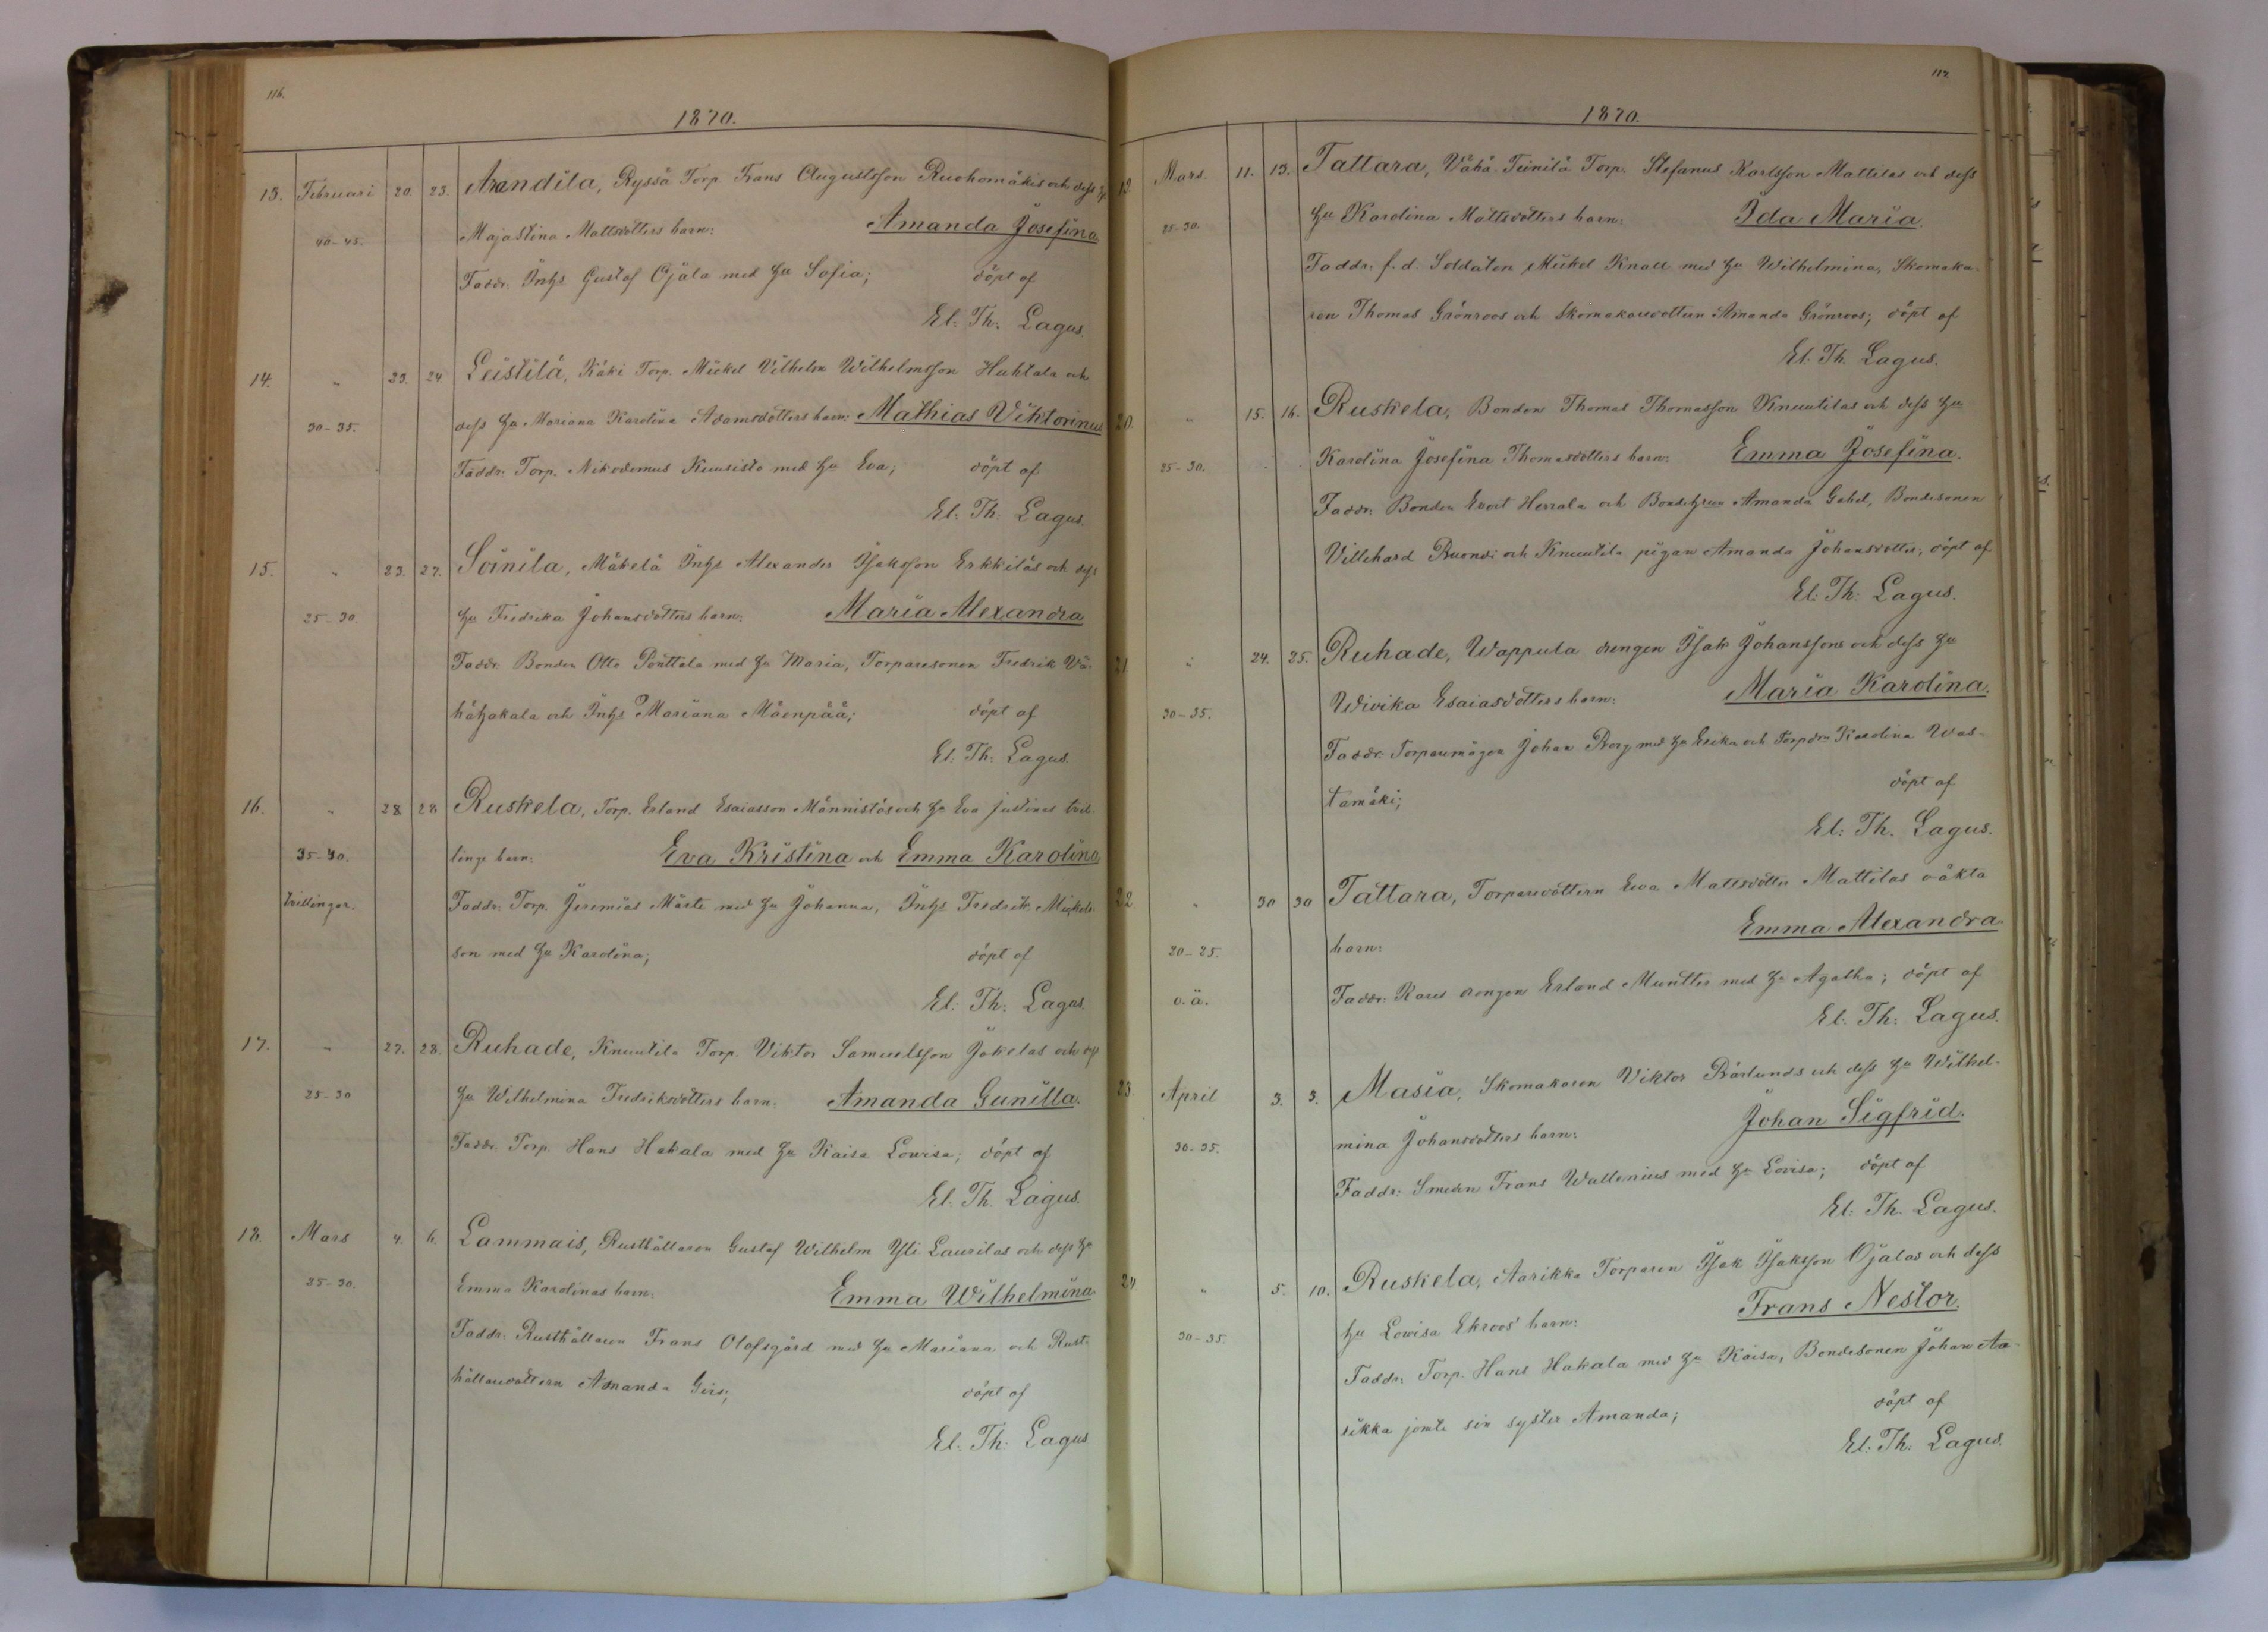 116.
1870.
13. Februari 20. 23. Arandila, Ryssä Torp. Frans Augustsson Ruohomäkis och dess Hu
40-45. Majastina Mattsdotters barn: Amanda Josefina.
Faddr. Inhs Gustaf Ojala med Hu Sofia; döpt af
El. Th. Lagus.
14. " 23. 24. Leistilä, Käki Torp. Mickel Vilhelm Wilhelmsson Huhtala och
30-35. dess Hu Mariana Karolina Adamsdotters barn: Mathias Viktorinus
Faddr. Torp. Nikodemus Kuusisto med Hu Eva; döpt af
El. Th. Lagus.
15. " 23. 27. Soinila, Mäkelä Inhs Alexander Isaksson Erkkiläs och dess
25-30. Hu Fredrika Johansdotters barn: Maria Alexandra
Faddr. Bonden Otto Ponttala med Hu Maria, Torparesonen Fredrik Vä-
hähakala och Inhs Mariana Mäenpää; döpt af
El. Th. Lagus.
16. " 28 28 Ruskela, Torp. Erland Esaiasson Männistös och Hu Eva Judinas tvil-
35-40. linge barn: Eva Kristina och Emma Karolina
tvillingar. Faddr. Torp. Jeremias Märte med Hu Johanna, Inhs Fredrik Mickels-
son med Hu Karolina; döpt af
El. Th. Lagus.
17. " 27. 28. Ruhade, Knuutila Torp. Viktor Samuelsson Jokelas och dess
25-30 Hu Wilhelmina Fredriksdotters barn: Amanda Gunilla.
Faddr. Torp. Hans Hakala med Hu Kaisa Lovisa; döpt af
El. Th. Lagus.
18. Mars 4. 6. Lammais, Rusthållaren Gustaf Wilhelm Yli Laurilas och dess Hu
25-30. Emma Karolinas barn: Emma Wilhelmina.
Faddr. Rusthållaren Frans Olofsgård med Hu Mariana och Rust-
hållaredottern Amanda Girs; döpt af
El. Th. Lagus
117
1870.
19. Mars. 11. 13. Tattara, Vähä Teinilä Torp. Stefanus Karlsson Mattilas och dess
25-30. Hu Karolina Mattsdotters barn: Ida Maria.
Faddr. f.d. Soldaten Mickel Knall med Hu Wilhelmina, Skomaka-
ren Thomas Grönroos och Skomakaredottern Amanda Grönroos; döpt af
El. Th. Lagus.
20. " 15. 16. Ruskela, Bonden Thomas Thomasson Knuutilas och dess Hu
25-30. Karolina Josefina Thomasdotters barn: Emma Josefina.
Faddr. Bonden Evert Herrala och Bondehustrun Amanda Gebel, Bondesonen
Villehard Ruondi och Knuutila pigan Amanda Johansdotter; döpt af
El. Th. Lagus.
21. " 24. 25. Ruhade, Wappula drengen Isak Johanssons och dess Hu
30-35. Wivika Esaiasdotters barn: Maria Karolina.
Faddr. Torparemågen Johan Borg med Hu Erika och Torpdrn Karolina Was-
tamäki; döpt af
El. Th. Lagus.
22. " 30 30 Tattara, Torparedottern Eva Mattsdotter Mattilas oäkta
20-25. barn: Emma Alexandra.
o.ä. Faddr. Kares drengen Erland Muntter med Hu Agatha; döpt af
El. Th. Lagus.
23. April 3. 3. Masia, Skomakaren Viktor Bärlunds och dess Hu Wilhel-
30-35. mina Johansdotters barn: Johan Sigfrid.
Faddr. Smeden Frans Wallenius med Hu Lovisa; döpt af
El. Th. Lagus.
24. " 5. 10. Ruskela, Aarikka Torparen Isak Isaksson Ojalas och dess
30-35. Hu Lovisa Ekroos' barn: Frans Nestor.
Faddr. Torp. Hans Hakala med Hu Kaisa, Bondesonen Johan Aa-
rikka jemte sin syster Amanda; döpt af
El. Th. Lagus.